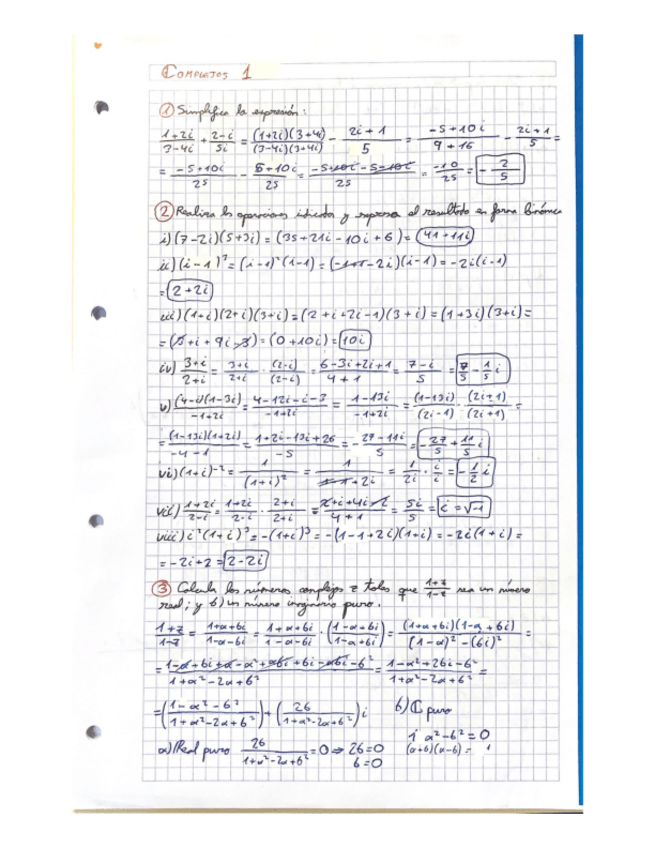 COMPLEJOS 1
① Simplifica la expresión:
(1+2i)/(3-4i) + (2-i)/(5i) = ((1+2i)(3+4i))/((3-4i)(3+4i)) - (2i+1)/5 = (-5+10i)/(9+16) - (2i+1)/5 =
= (-5+10i)/25 - (5+10i)/25 = (-5+10i-5-10i)/25 = -10/25 = -2/5
② Realiza las operaciones indicadas y expresa el resultado en forma binómica
i) (7-2i)(5+3i) = (35+21i-10i+6) = 41+11i
ii) (i-1)³ = (i-1)²(i-1) = (-1+1-2i)(i-1) = -2i(i-1)
= 2+2i
iii) (1+i)(2+i)(3+i) = (2+i+2i-1)(3+i) = (1+3i)(3+i) =
= (3+i+9i-3) = (0+10i) = 10i
iv) (3+i)/(2+i) = (3+i)/(2+i) · (2-i)/(2-i) = (6-3i+2i+1)/(4+1) = (7-i)/5 = 7/5 - 1/5 i
v) ((4-i)(1-3i))/(-1+2i) = (4-12i-i-3)/(-1+2i) = (1-13i)/(-1+2i) = (1-13i)/(2i-1) · (2i+1)/(2i+1) =
= ((1-13i)(1+2i))/(-4-1) = (1+2i-13i+26)/(-5) = - (27-11i)/5 = -27/5 + 11/5 i
vi) (1+i)⁻² = 1/(1+i)² = 1/(1-1+2i) = 1/2i · i/i = -1/2 i
vii) (1+2i)/(2-i) = (1+2i)/(2-i) · (2+i)/(2+i) = (2+i+4i-2)/(4+1) = 5i/5 = i = √-1
viii) i²(1+i)³ = -(1+i)³ = -(1-1+2i)(1+i) = -2i(1+i) =
= -2i+2 = 2-2i
③ Calcula los números complejos z tales que (1+z)/(1-z) sea un número
real; y b) un número imaginario puro.
(1+z)/(1-z) = (1+a+bi)/(1-a-bi) = (1+a+bi)/(1-a-bi) · ((1-a+bi)/(1-a+bi)) = ((1+a+bi)(1-a+bi))/((1-a)²-(bi)²) =
= (1-a+bi+a-a²+abi+bi-abi-b²)/(1+a²-2a+b²) = (1-a²+2bi-b²)/(1+a²-2a+b²) =
= ((1-a²-b²)/(1+a²-2a+b²)) + (2b/(1+a²-2a+b²)) i
b) ℂ puro
a) Real puro 2b/(1+a²-2a+b²) = 0 ⇒ 2b=0
b=0
a²-b² = 0
(a+b)(a-b) =